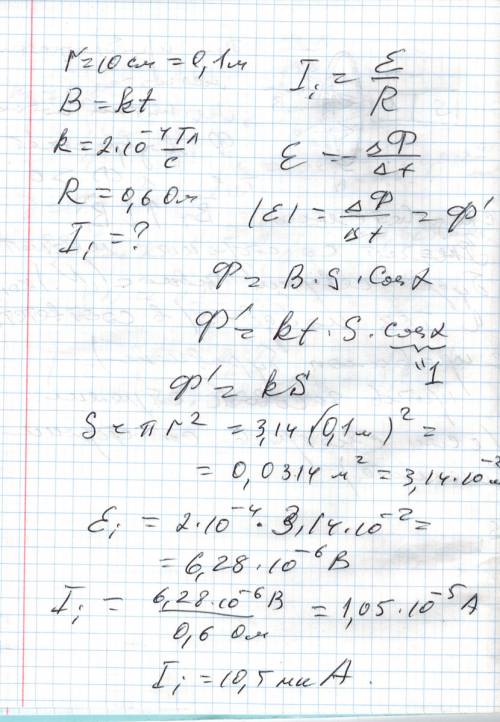 r=10 см = 0,1 м
I_i = ℰ/R
B = kt
k = 2·10⁻⁴ Тл/с
ℰ = -ΔФ/Δt
R = 0,6 Ом
|ℰ| = ΔФ/Δt = Ф'
I_i = ?
Ф = B·S·Cosα
Ф' = kt·S·cosα
"1
Ф' = kS
S = πr² = 3,14 (0,1м)² =
= 0,0314 м² = 3,14·10⁻² м
ℰ_i = 2·10⁻⁴·3,14·10⁻² =
= 6,28·10⁻⁶ В
I_i = 6,28·10⁻⁶ В / 0,6 Ом = 1,05·10⁻⁵ А
I_i = 10,5 мкА.